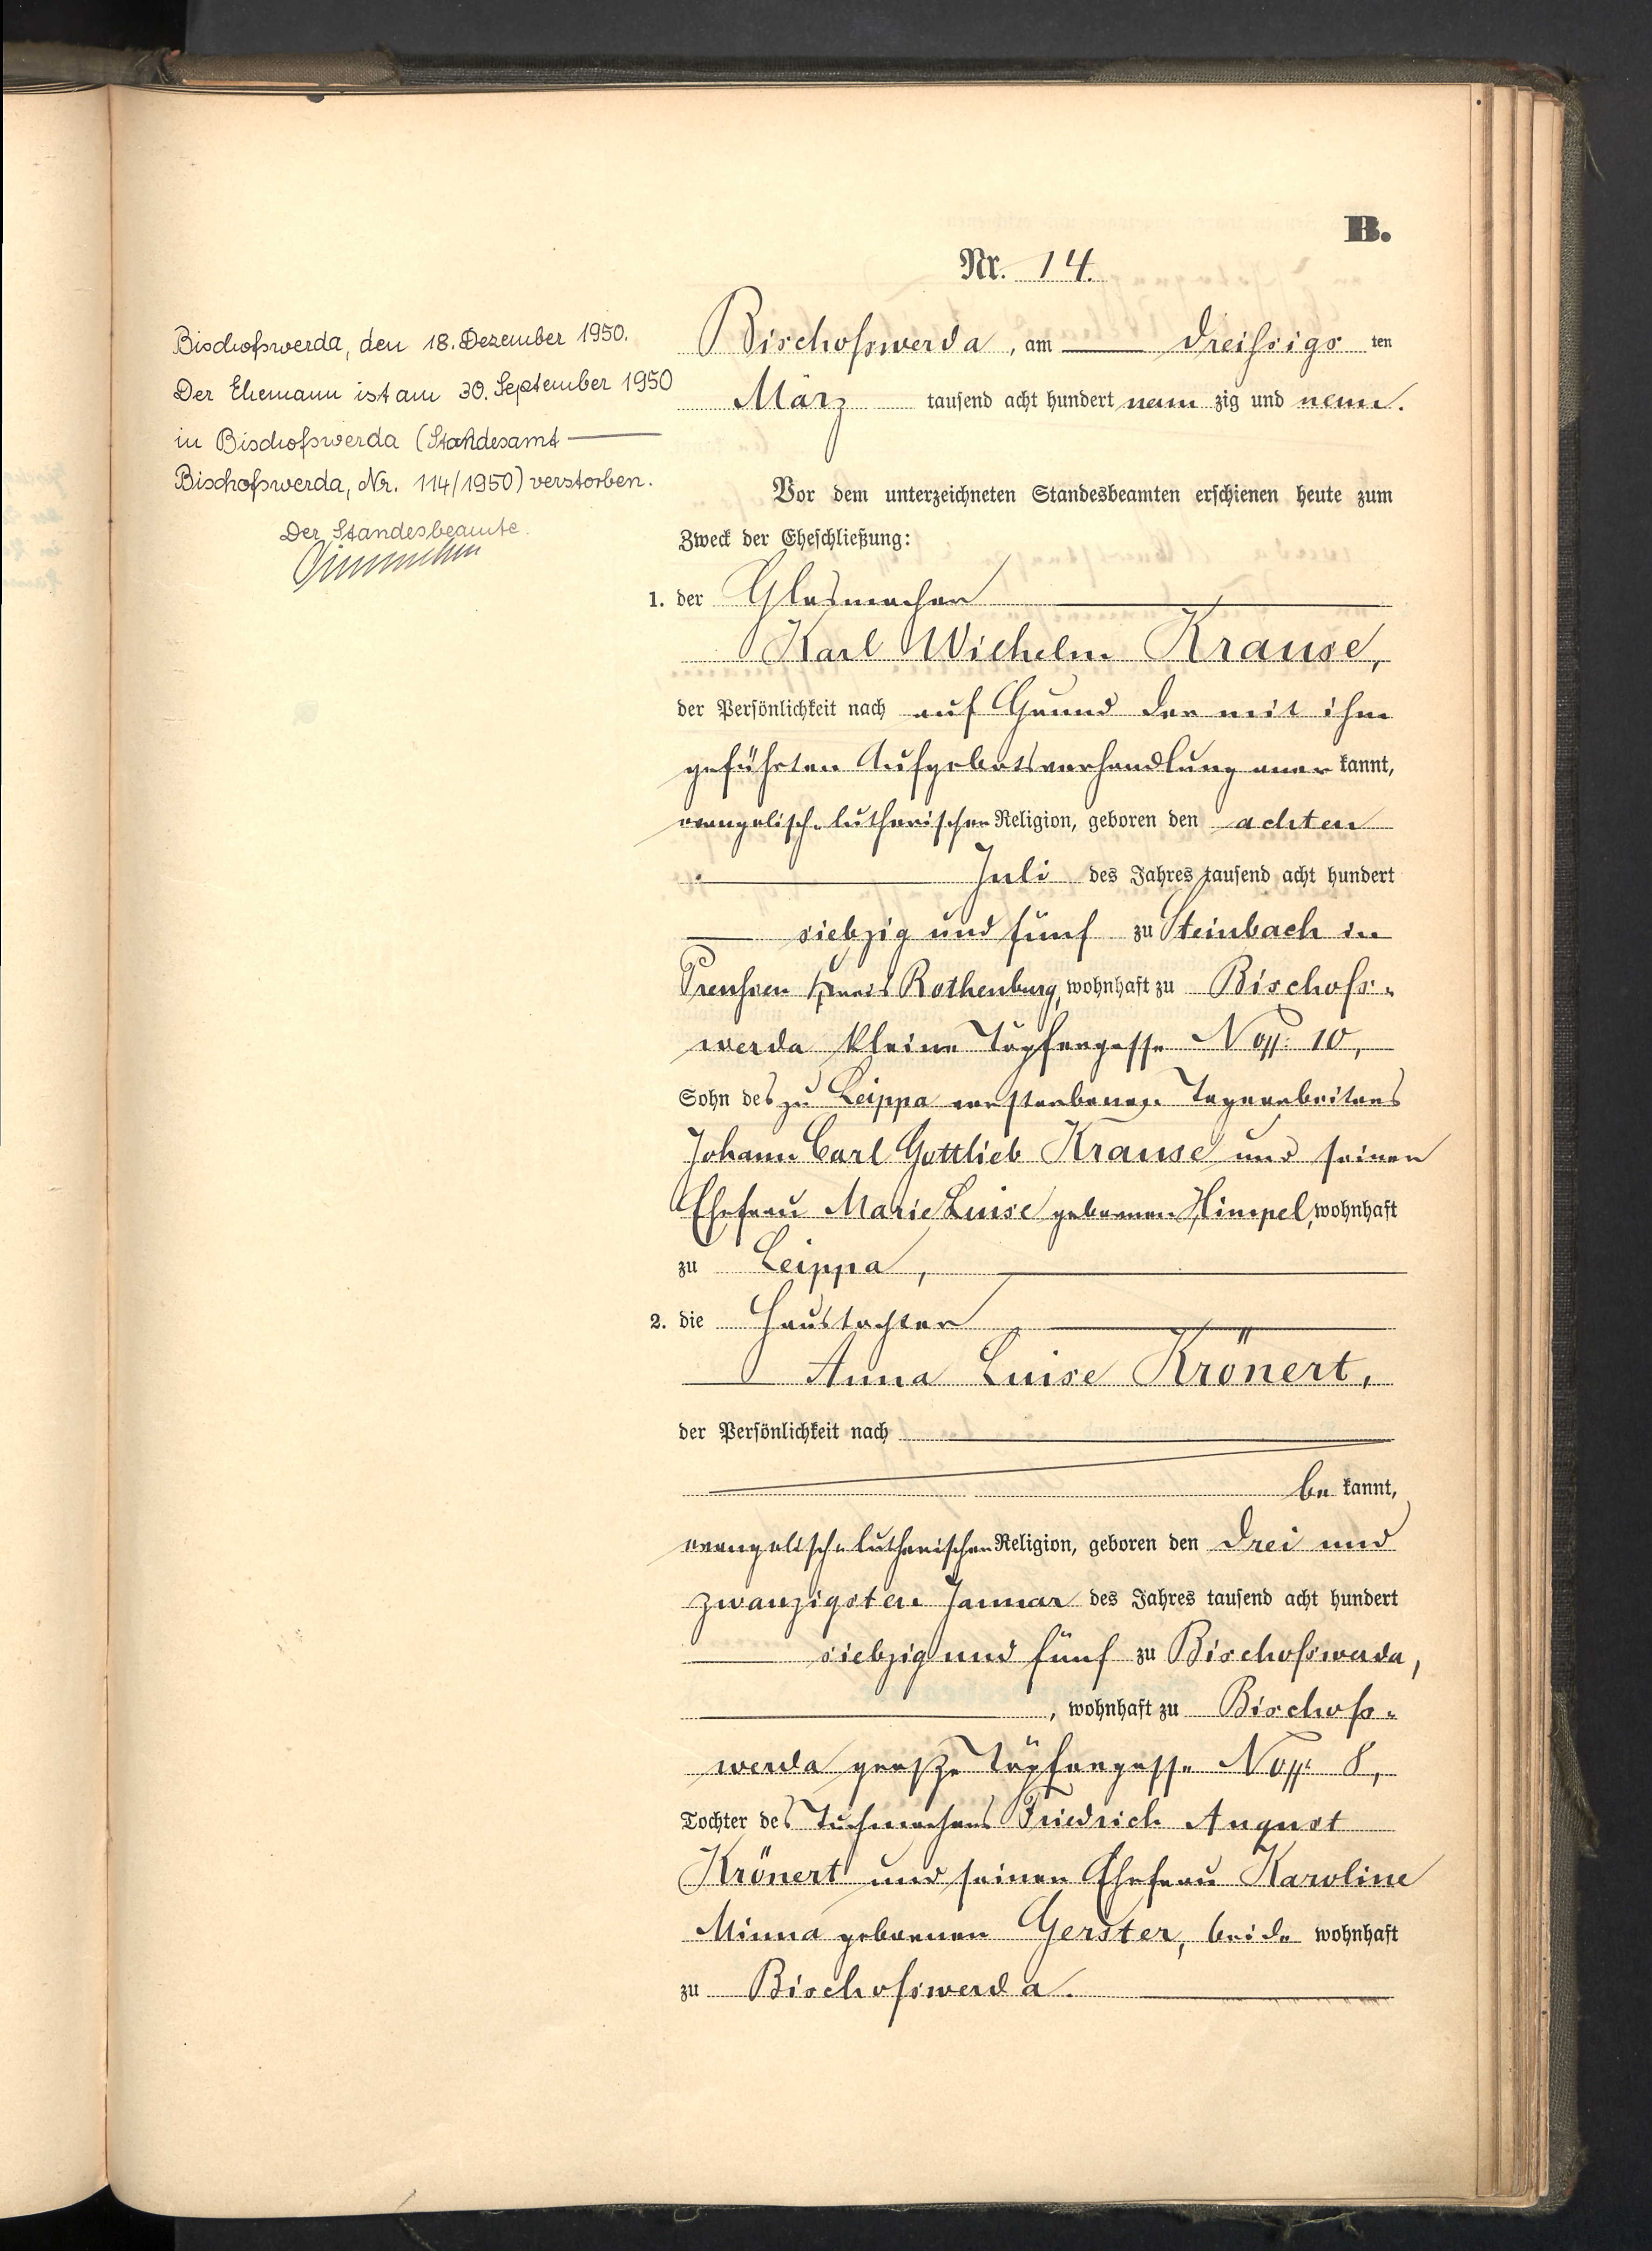 B.
Nr. 14.
Bischofswerda, am dreißigs ten
März tausend acht hundert neun zig und neun.
Vor dem unterzeichneten Standesbeamten erschienen heute zum
Zweck der Eheschließung:
1. der Glasmacher
Karl Wilhelm Krause,
der Persönlichkeit nach auf Grund der mit ihm
geführten Aufgebotsverhandlung aner kannt,
evangelisch-lutherischer Religion, geboren den achten
Juli des Jahres tausend acht hundert
siebzig und fünf zu Steinbach in
Preußen Kreis Rothenburg, wohnhaft zu Bischofs-
werda kleine Töpfergasse No. 10,
Sohn des zu Leippa verstorbenen Tagearbeiters
Johann Carl Gottlieb Krause und seiner
Ehefrau Marie Luise geborenen Himpel, wohnhaft
zu Leippa,
2. die Haustochter
Anna Luise Krönert,
der Persönlichkeit nach
be kannt,
evangelisch-lutherischer Religion, geboren den drei und
zwanzigsten Januar des Jahres tausend acht hundert
siebzig und fünf zu Bischofswerda,
, wohnhaft zu Bischofs-
werda große Töpfergasse No. 8,
Tochter des Tuchmachers Friedrich August
Krönert und seiner Ehefrau Karoline
Minna geborenen Gerster, beide wohnhaft
zu Bischofswerda.
Bischofswerda, den 18. Dezember 1950.
Der Ehemann ist am 30. September 1950
in Bischofswerda (Standesamt
Bischofswerda, Nr. 114/1950) verstorben.
Der Standesbeamte.